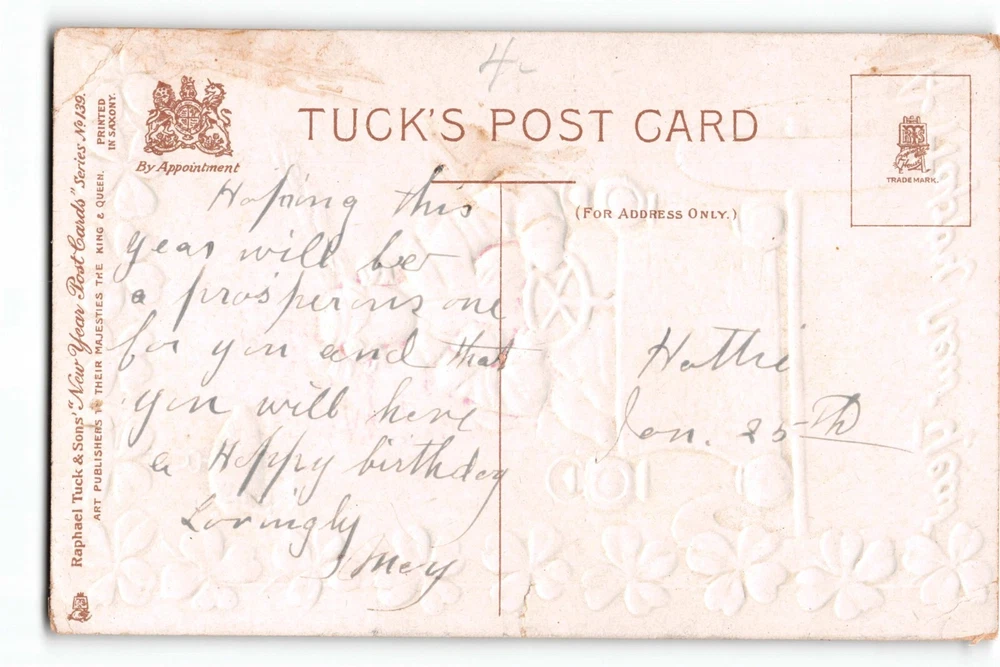 4
TUCK'S POST CARD
By Appointment
TRADE MARK.
(FOR ADDRESS ONLY.)
Raphael Tuck & Sons' "New Year Post Cards" Series No 139.
ART PUBLISHERS TO THEIR MAJESTIES THE KING & QUEEN.
PRINTED
IN SAXONY.
Hoping this
year will be
a prosperous one
for you and that
you will have
a Happy birthday
Lovingly
May
Hattie
Jan. 25th
A Happy New Year